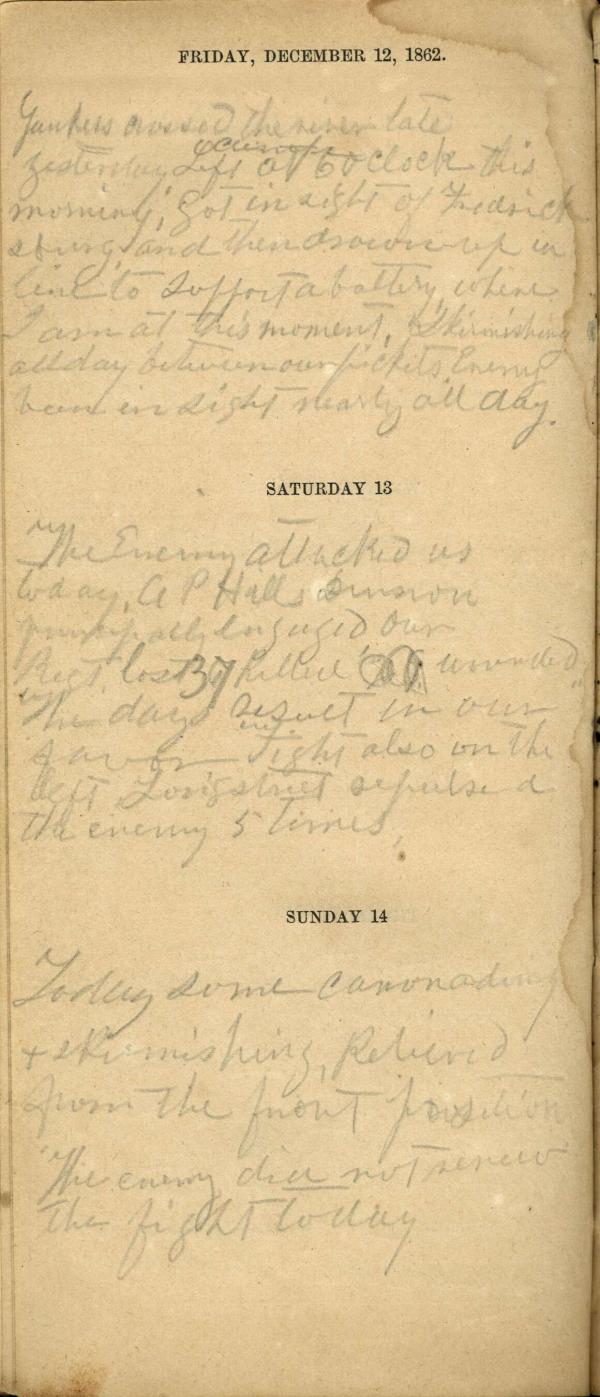 FRIDAY, DECEMBER 12, 1862.
Yankees crossed the river late
yesterday Left at 6 oclock this
morning, got in sight of Fredrick
sburg, and then drawn up in
line to support a battery, where
I am at this moment, Skirmishing
all day between our pickets, Enemy
been in sight nearly all day.
SATURDAY 13
The Enemy attacked us
today, A P Hills Division
principally engaged Our
Regt. lost 37 killed wounded
The days result in our
favor Fight also on the
left Longstreet repulsed
the enemy 5 times,
SUNDAY 14
Today some canonading
+ skirmishing, Relieved
from the front position
The enemy did not renew
the fight today